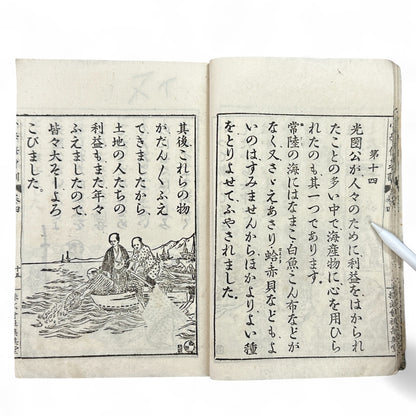 第十四
光圀公が人々のために利益をはかられ
たことの多い中で、海産物に心を用ひら
れたのも其一つであります。
常陸の海にはなまこ・白魚・こん布などが
なく、又さゞえ・あさり・蛤・赤貝などもよ
いのはすみませんからほかよりよい種
をとりよせてふやされました。
其後これらの物
がだん／＼ふえ
てきましたから、
土地の人たちの
利益もまた年々
ふえましたので、
皆々大そーよろ
こびました。